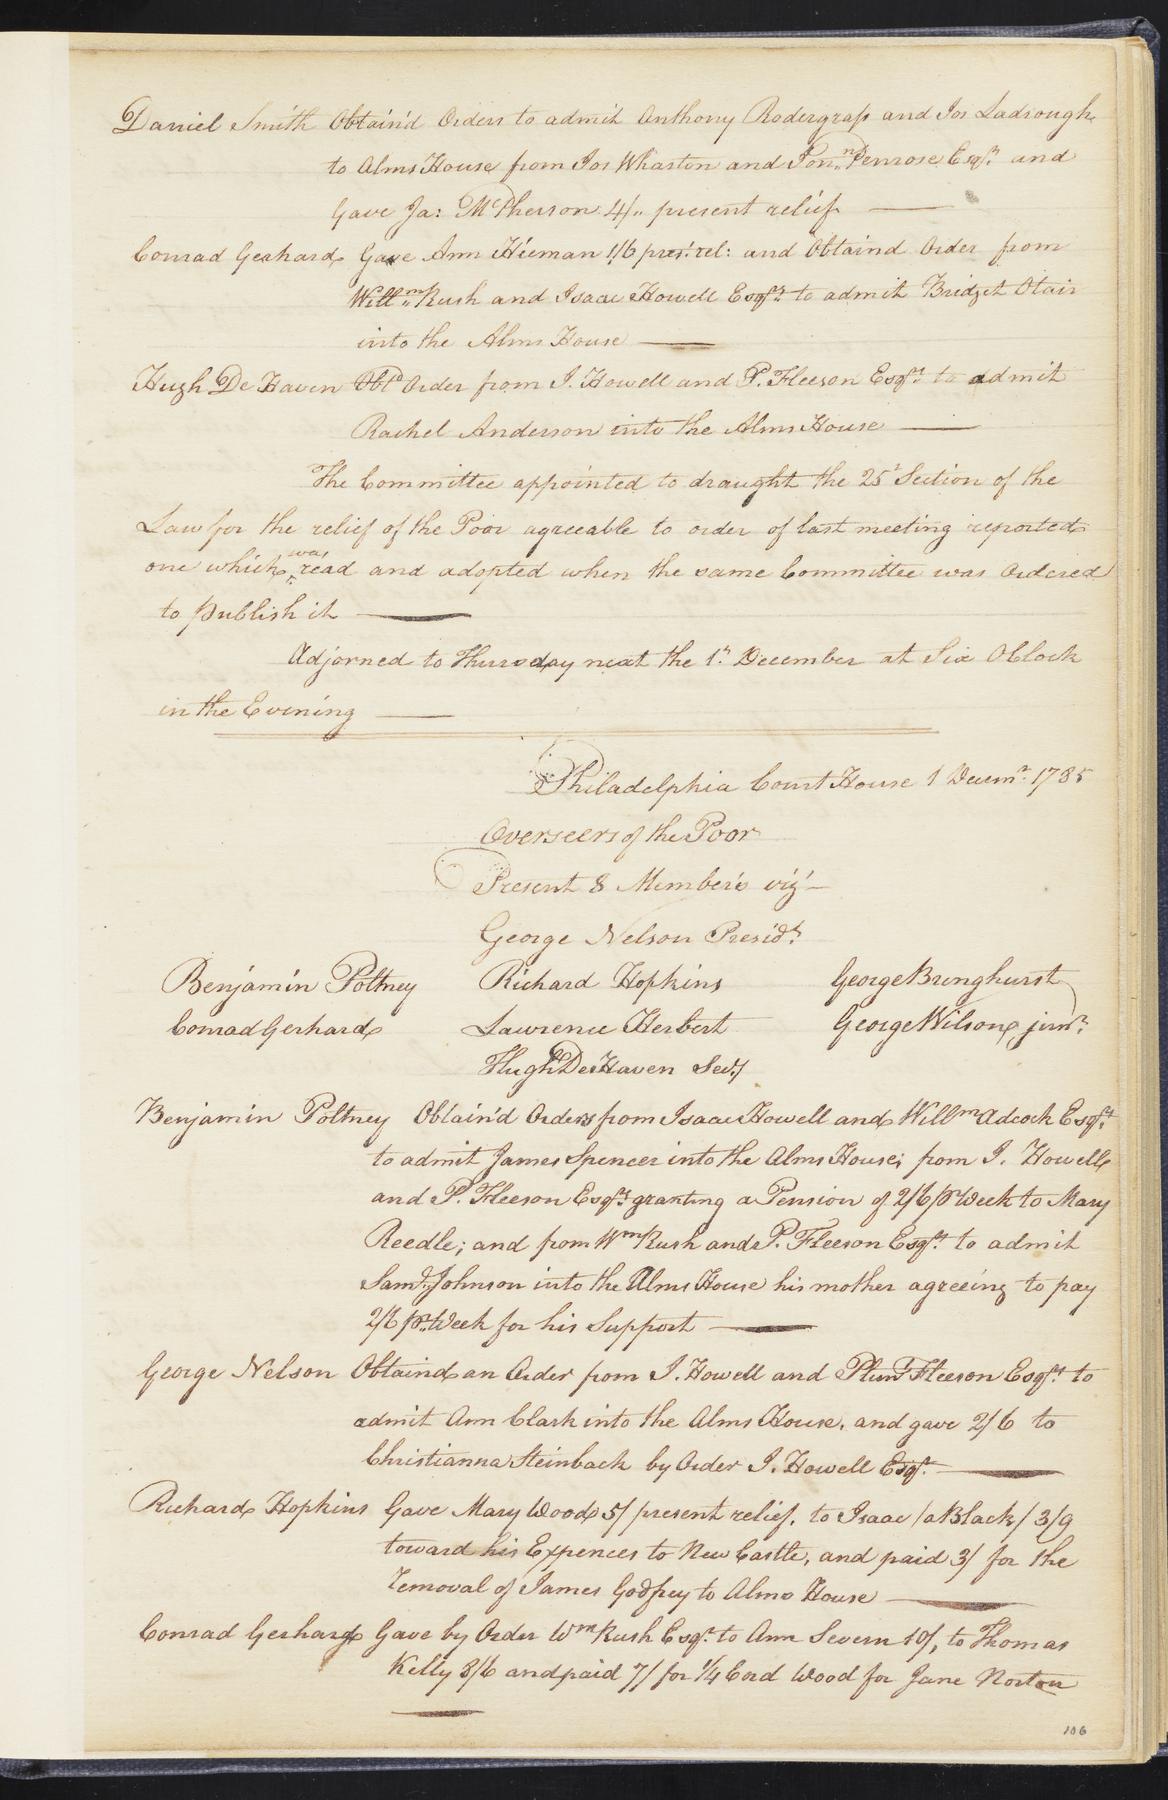 Daniel Smith Obtain'd Orders to admit Anthony Rodergrass and Jos Ladrough
to Alms House from Jos Wharton and Penrose Esqrs and
Gave Ja: McPherson 4/" present relief
Conrad Gerhard Gave Ann Hieman 1/6 pres: rel: and Obtaind Order from
Willm Rush and Isaac Howell Esqrs to admit Bridget Otair
into the Alms House
Hugh De Haven Obtd Order from I. Howell and P. Fleeson Esqrs to admit
Rachel Anderson into the Alms House
The Committee appointed to draught the 25 Section of the
Law for the relief of the Poor agreeable to order of last meeting reported
one which was read and adopted when the same Committee was Ordered
to publish it
Adjorned to Thursday next the 1st December at Six OClock
in the Evening
Philadelphia Court House 1 Decemr 1785
Overseers of the Poor
Present 8 Members viz
George Nelson Presidt
Benjamin Poltney Richard Hopkins George Bringhurst
Conrad Gerhard Lawrence Herbert George Wilson junr
Hugh De Haven Secy
Benjamin Poltney Obtain'd Orders from Isaac Howell and Willm Adcock Esqrs
to admit James Spencer into the Alms House; from I. Howell
and P. Fleeson Esqrs granting a Pension of 2/6 pr Week to Mary
Reedle; and from Wm Rush and P. Fleeson Esqrs to admit
Saml Johnson into the Alms House his mother agreeing to pay
2/6 pr Week for his Support
George Nelson Obtaind an Order from I. Howell and Plunt Fleeson Esqrs to
admit Ann Clark into the Alms House, and gave 2/6 to
Christianna Steinback by Order I. Howell Esqr
Richard Hopkins Gave Mary Wood 5/ present relief, to Isaac /a Black/ 3/9
toward his Expences to New Castle, and paid 3/ for the
removal of James Godfrey to Alms House
Conrad Gerhard Gave by Order Wm Rush Esqr to Ann Severn 10/, to Thomas
Kelly 3/6 and paid 7/ for 1/4 Cord Wood for Jane Norton
106